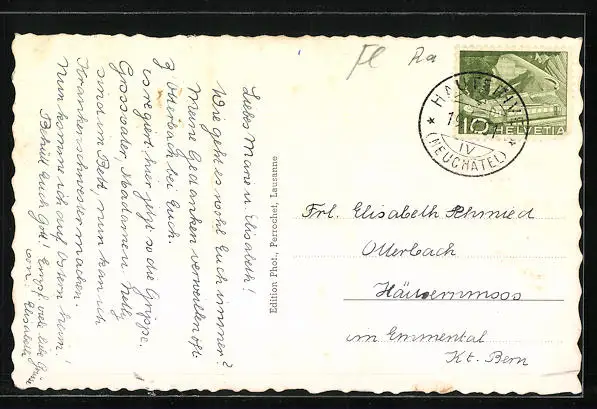 Fl Ra
HAUTERIVE
(NEUCHATEL)
IV
10 HELVETIA
Liebes Marie u Elisabeth!
Wie geht es wohl Euch immer?
Meine Gedanken verweilen oft
Otterbach bei Euch.
is regiert hier jetzt so die Grippe.
Grossvater, Madame u. Nelly
sind im Bett, nun kan ich
Krankenschwester machen.
Nun komme ich auf Ostern heim!
Behüt Euch Gott! Empf. viele liebe Grüsse
von Elisabeth
Edition Phot., Perrochet, Lausanne
Frl. Elisabeth Schmied
Otterbach
Häusernmoos
im Emmental
Kt. Bern